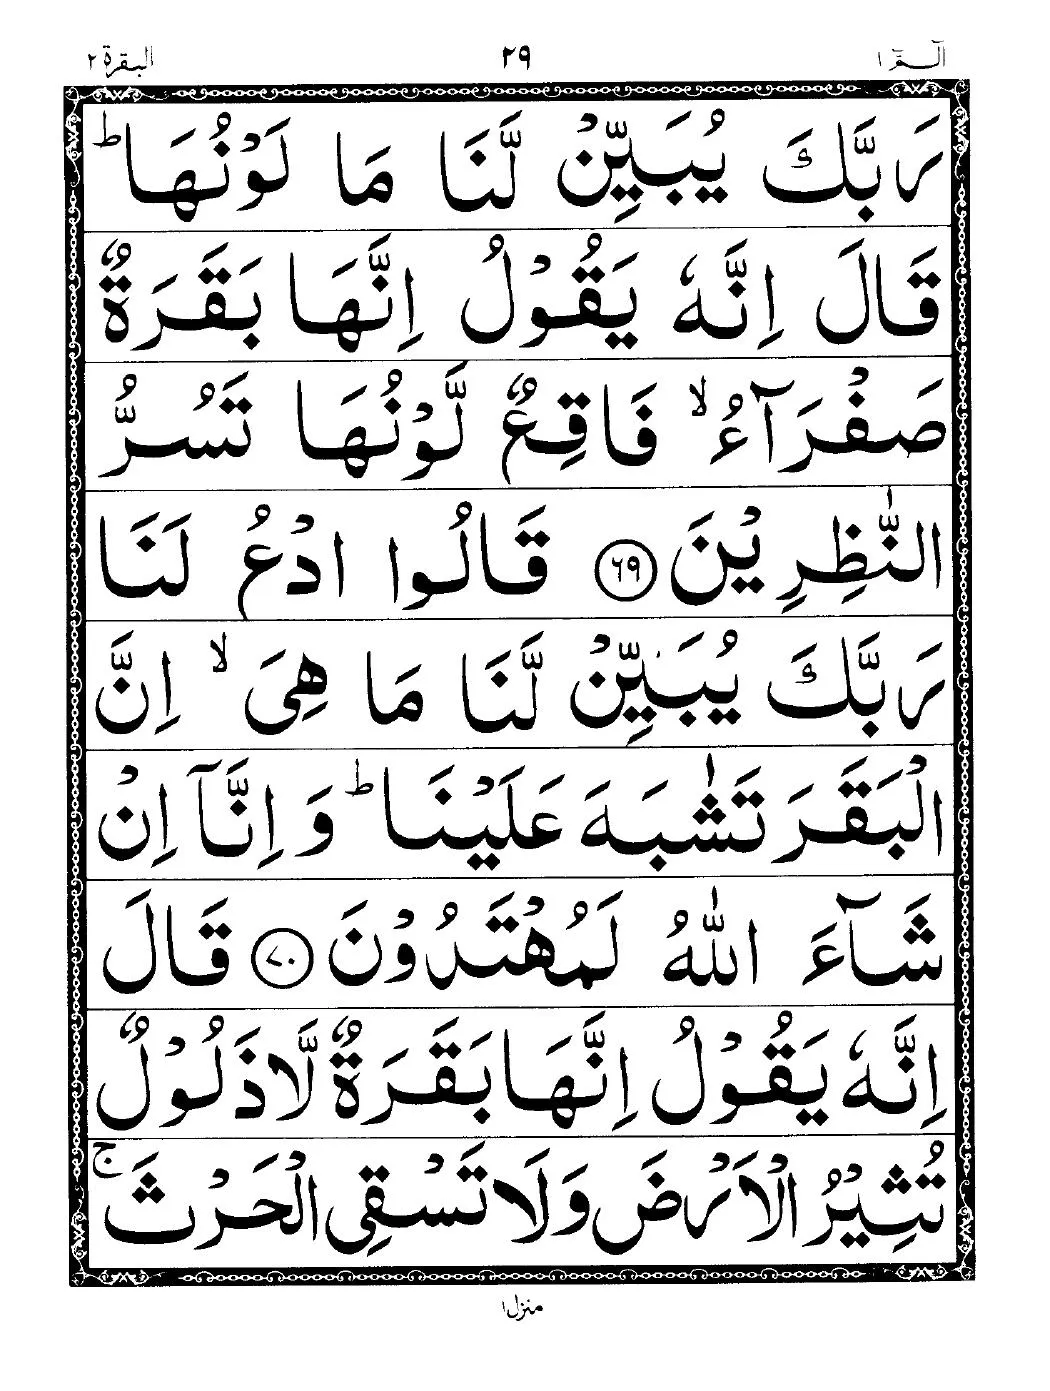 الٓمّٓ ١ ٢٩ البقرة ٢
رَبَّكَ يُبَيِّنْ لَّنَا مَا لَوْنُهَا ؕ
قَالَ اِنَّهٗ يَقُوْلُ اِنَّهَا بَقَرَةٌ
صَفْرَآءُ ۙ فَاقِعٌ لَّوْنُهَا تَسُرُّ
النّٰظِرِيْنَ ﴿٦٩﴾ قَالُوا ادْعُ لَنَا
رَبَّكَ يُبَيِّنْ لَّنَا مَا هِىَ ۙ اِنَّ
الْبَقَرَ تَشٰبَهَ عَلَيْنَا ؕ وَ اِنَّآ اِنْ
شَآءَ اللّٰهُ لَمُهْتَدُوْنَ ﴿٧٠﴾ قَالَ
اِنَّهٗ يَقُوْلُ اِنَّهَا بَقَرَةٌ لَّا ذَلُوْلٌ
تُثِيْرُ الْاَرْضَ وَلَا تَسْقِى الْحَرْثَ ۚ
منزل ١